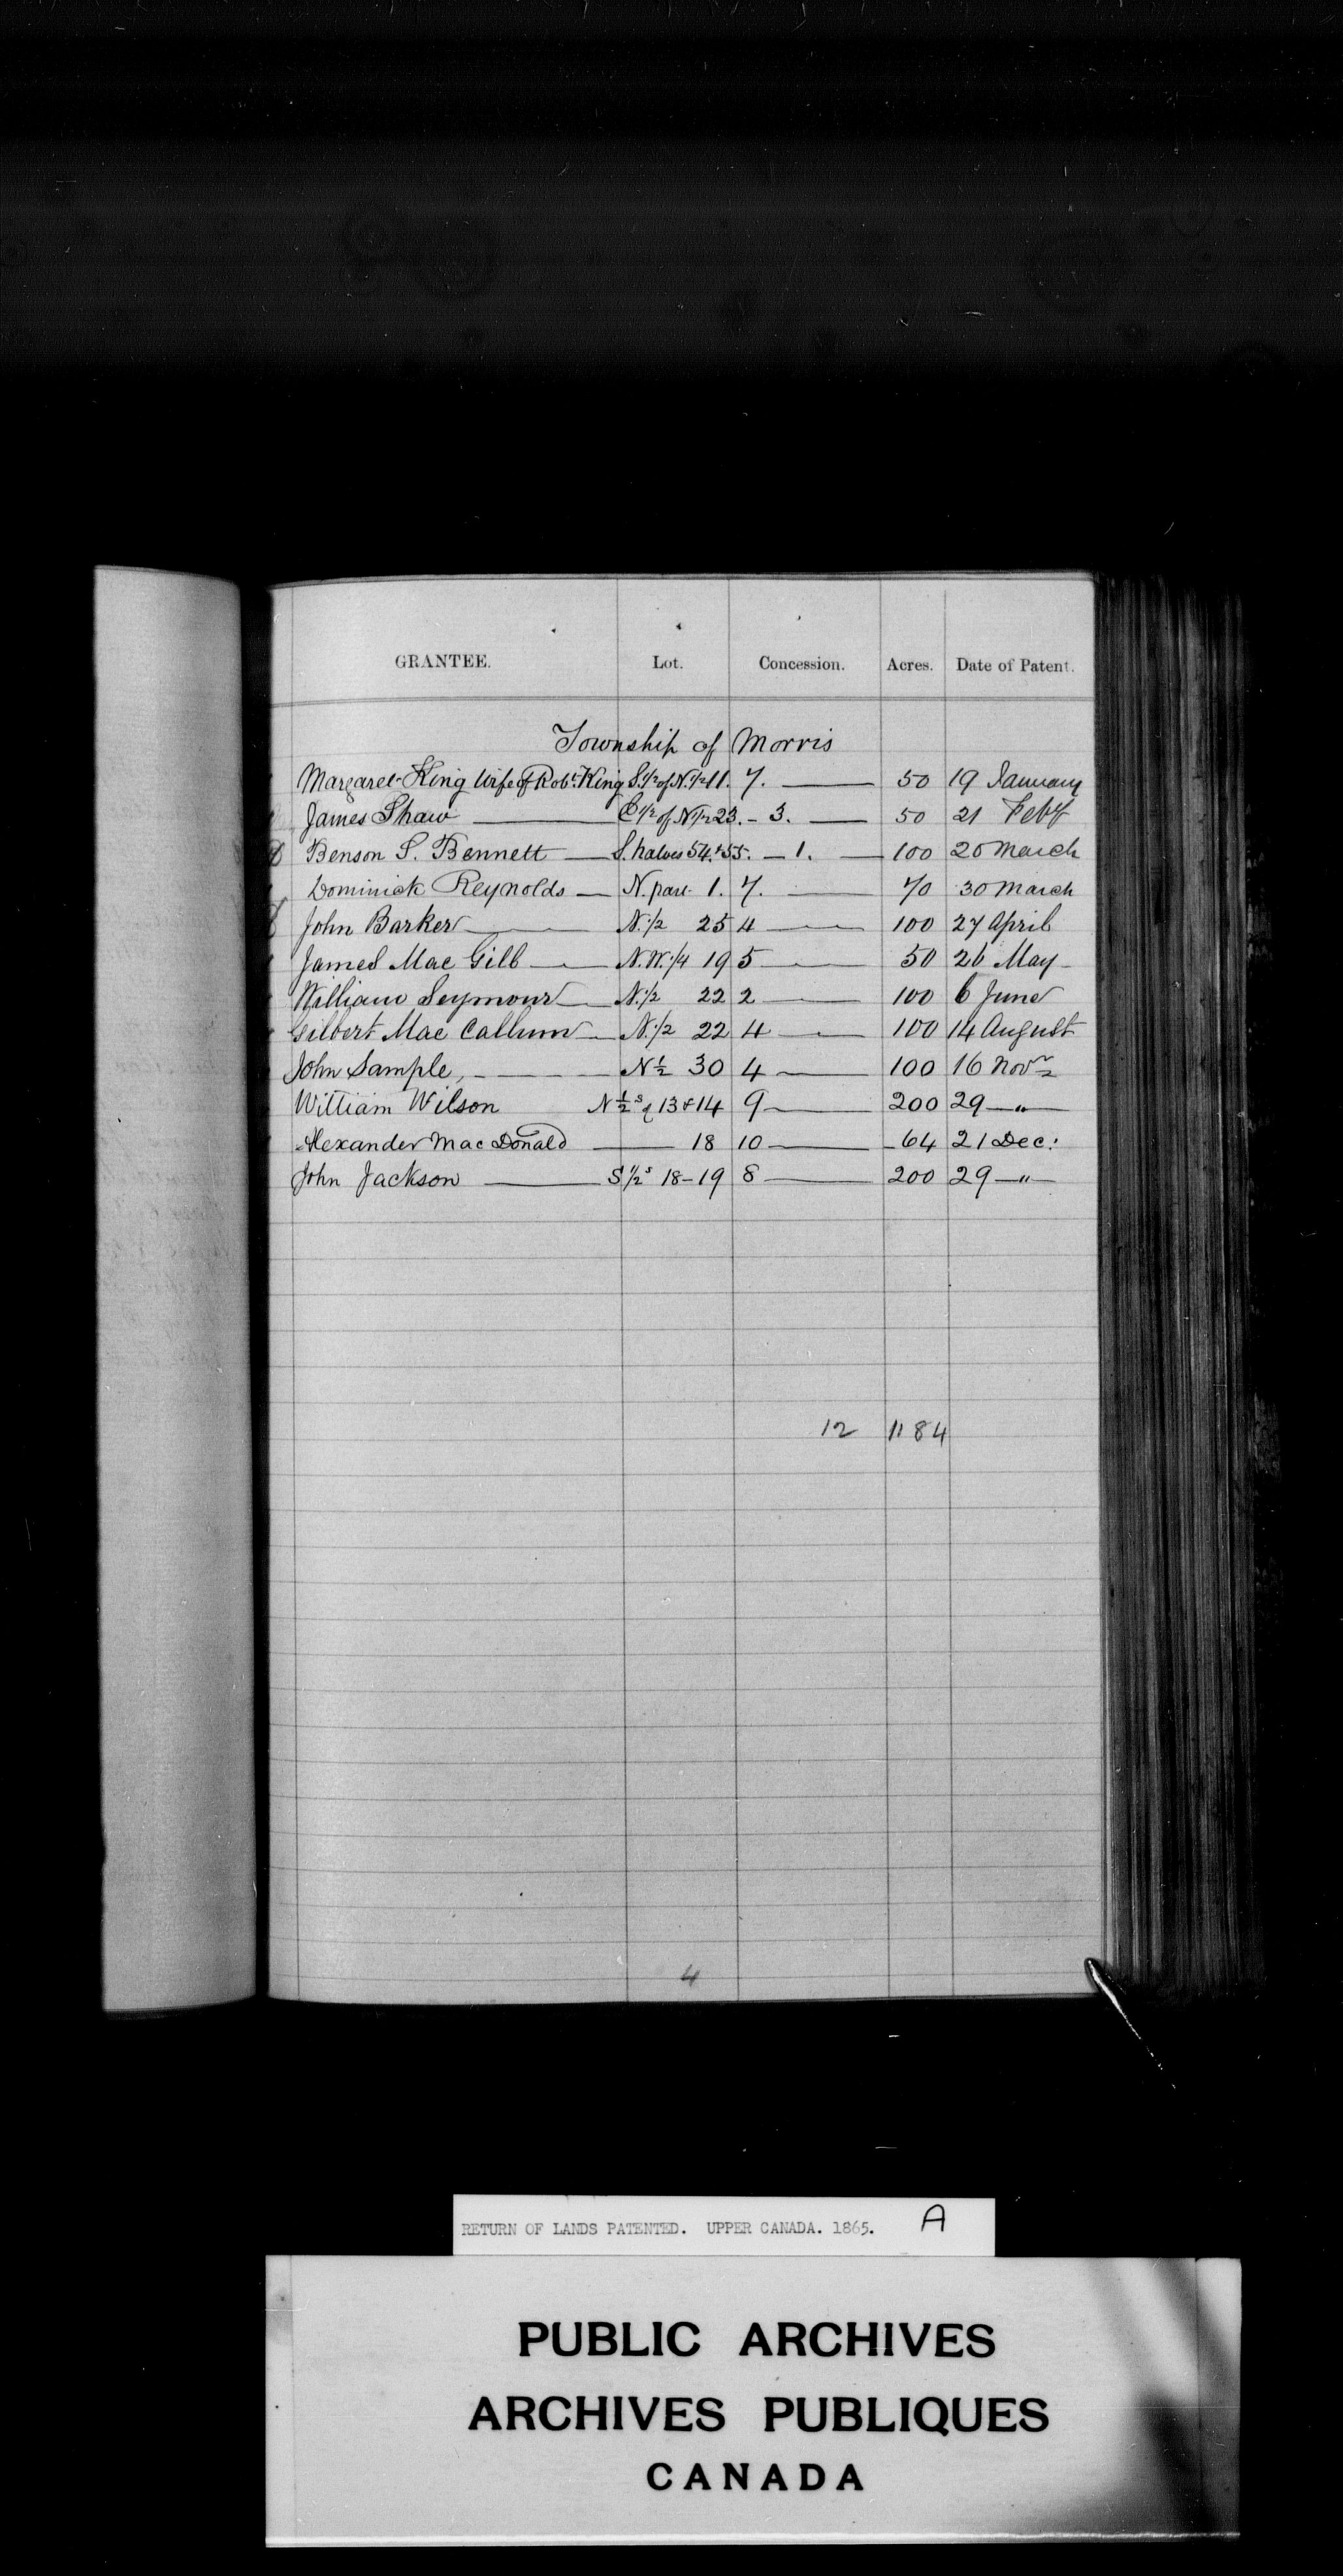 GRANTEE. Lot. Concession. Acres. Date of Patent.
Township of Morris
Margaret King Wife of Robt. King S.1/2 of N.1/2 11. 7. 50 19 January
James Shaw E 1/2 of N 1/2 23. - 3. 50 21 Feby
Benson S. Bennett S. halves 54. & 55. - 1. 100 20 March
Dominick Reynolds N. part 1. 7. 70 30 March
John Barker N.1/2 25 4 100 27 April
James Mac Gill N.W.1/4 19 5 50 26 May
William Seymour N.1/2 22 2 100 6 June
Gilbert Mac Callum N.1/2 22 4 100 14 August
John Sample, N 1/2 30 4 100 16 Novr
William Wilson N 1/2s of 13 & 14 9 200 29 "
Alexander Mac Donald 18 10 64 21 Dec:
John Jackson S 1/2s 18-19 8 200 29 "
12 1184
4
RETURN OF LANDS PATENTED. UPPER CANADA. 1865. A
PUBLIC ARCHIVES
ARCHIVES PUBLIQUES
CANADA